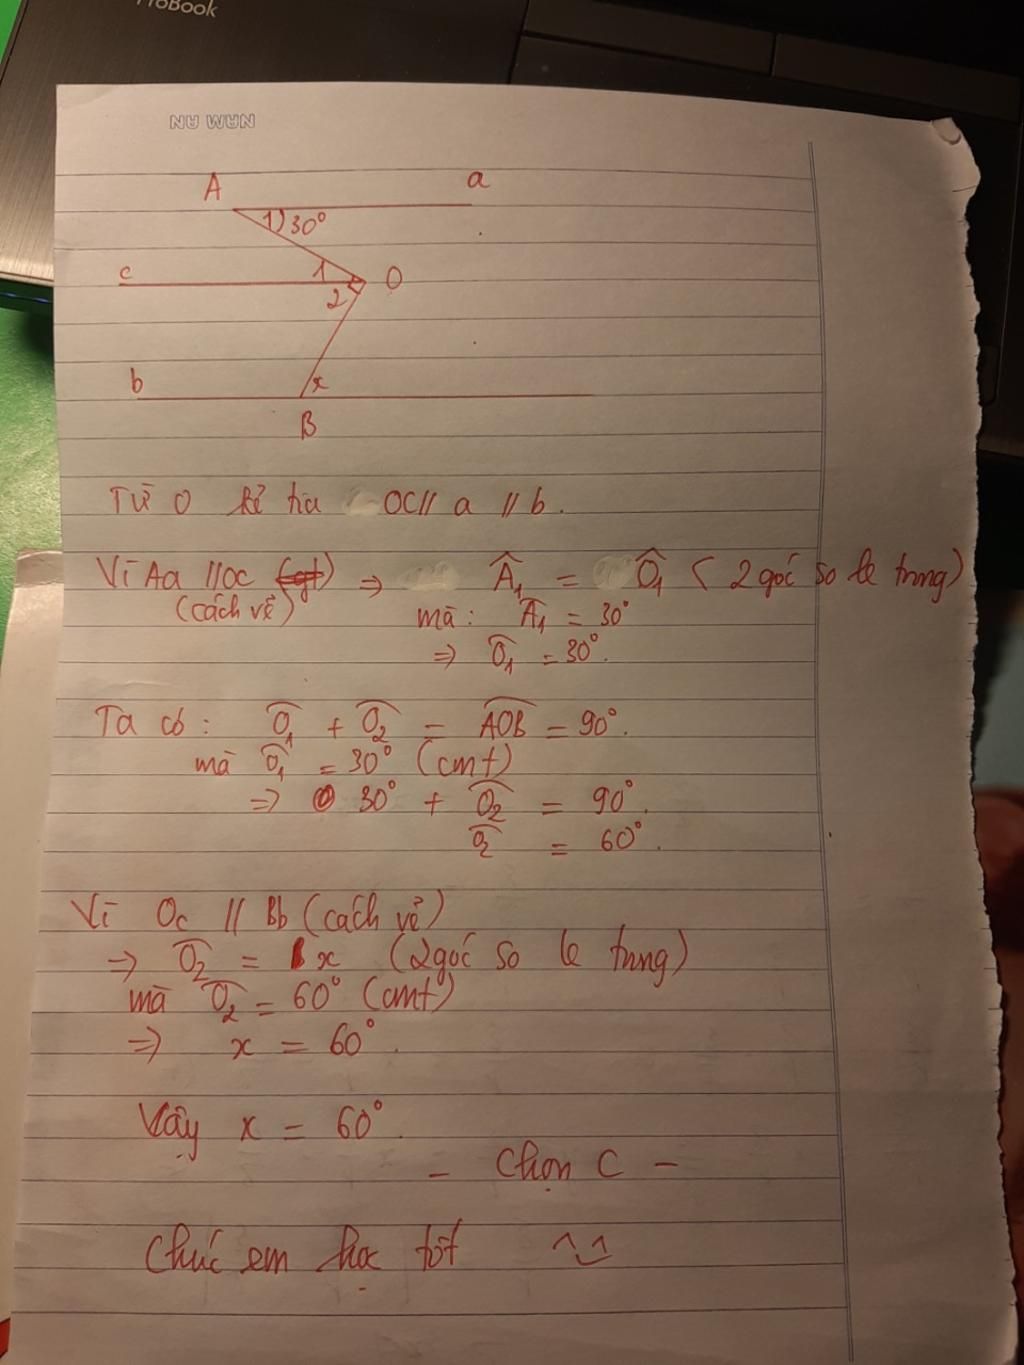 ProBook
NAM AN
A a
1) 30°
c 1 O
2
b x
B
Từ O kẻ tia OC // a // b.
Vì Aa // Oc (gt) ⇒ Â₁ = Ô₁ (2 góc so le trung)
(cách vẽ) mà: Â₁ = 30°
⇒ Ô₁ = 30°.
Ta có: Ô₁ + Ô₂ = AOB = 90°.
mà Ô₁ = 30° (cmt)
⇒ 30° + Ô₂ = 90°.
Ô₂ = 60°.
Vì Oc // Bb (cách vẽ)
⇒ Ô₂ = x (2 góc so le trung)
mà Ô₂ = 60° (cmt)
⇒ x = 60°.
Vậy x = 60°.
- Chọn C -
Chúc em học tốt ^^